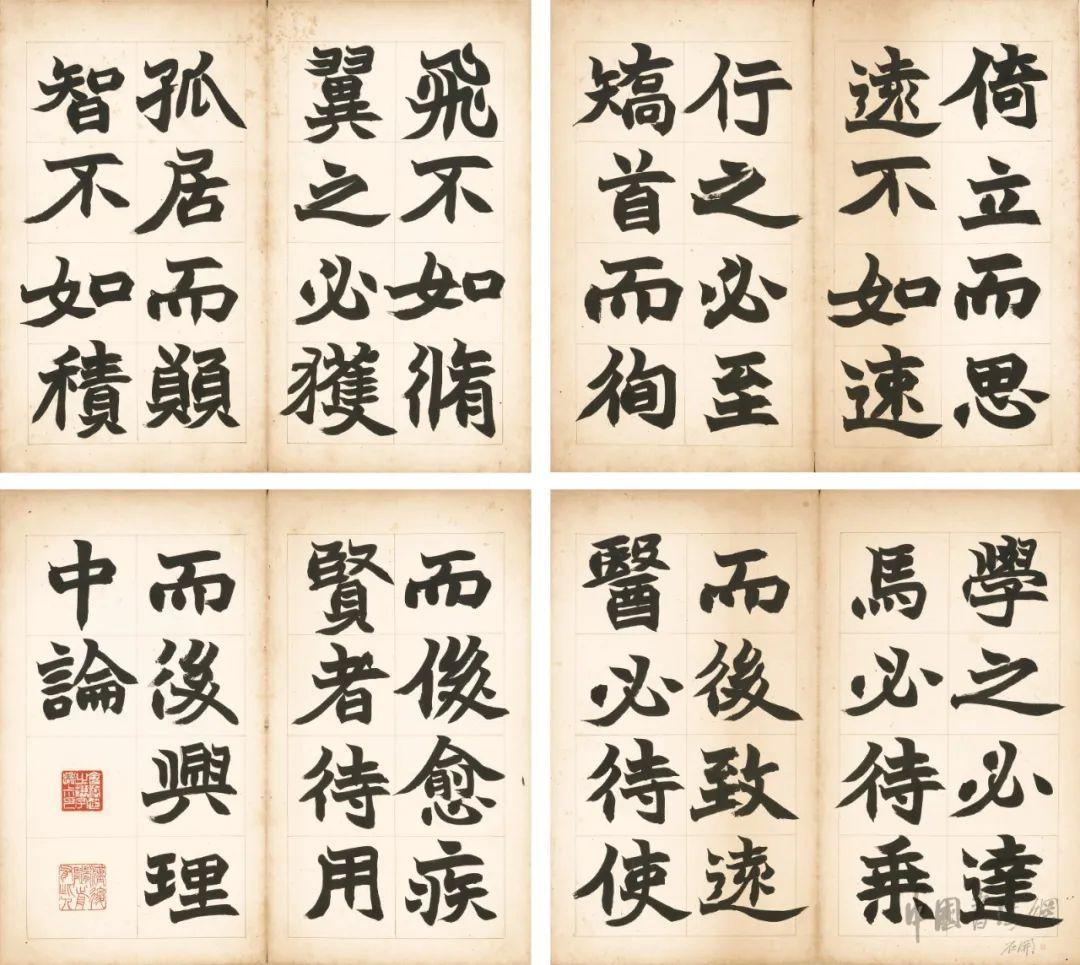 倚立而思
遠不如速
行之必至
矯首而徇
飛不如脩
翼之必獲
孤居而願
智不如積
學之必達
馬必待乗
而後致遠
醫必待使
而後愈疾
賢者待用
而後興理
中論
中國書法網